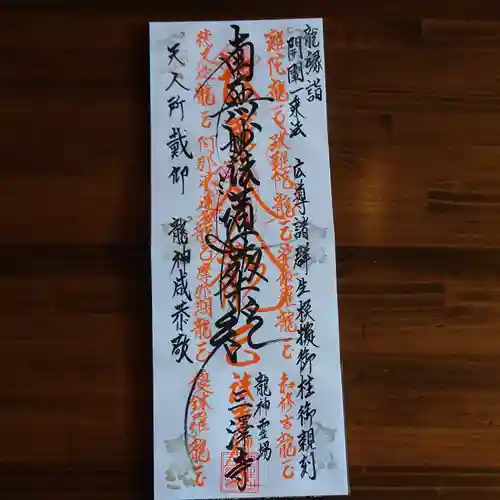 龍縁詣
開闡一乗法　広導諸群生　板損御柱御親刻
難陀龍王 跋難陀龍王 娑伽羅龍王 和修吉龍王
南無妙法蓮華経
龍神霊場
三澤寺
徳叉迦龍王 阿那婆達多龍王 摩那斯龍王 優鉢羅龍王
天人所戴仰　龍神咸恭敬